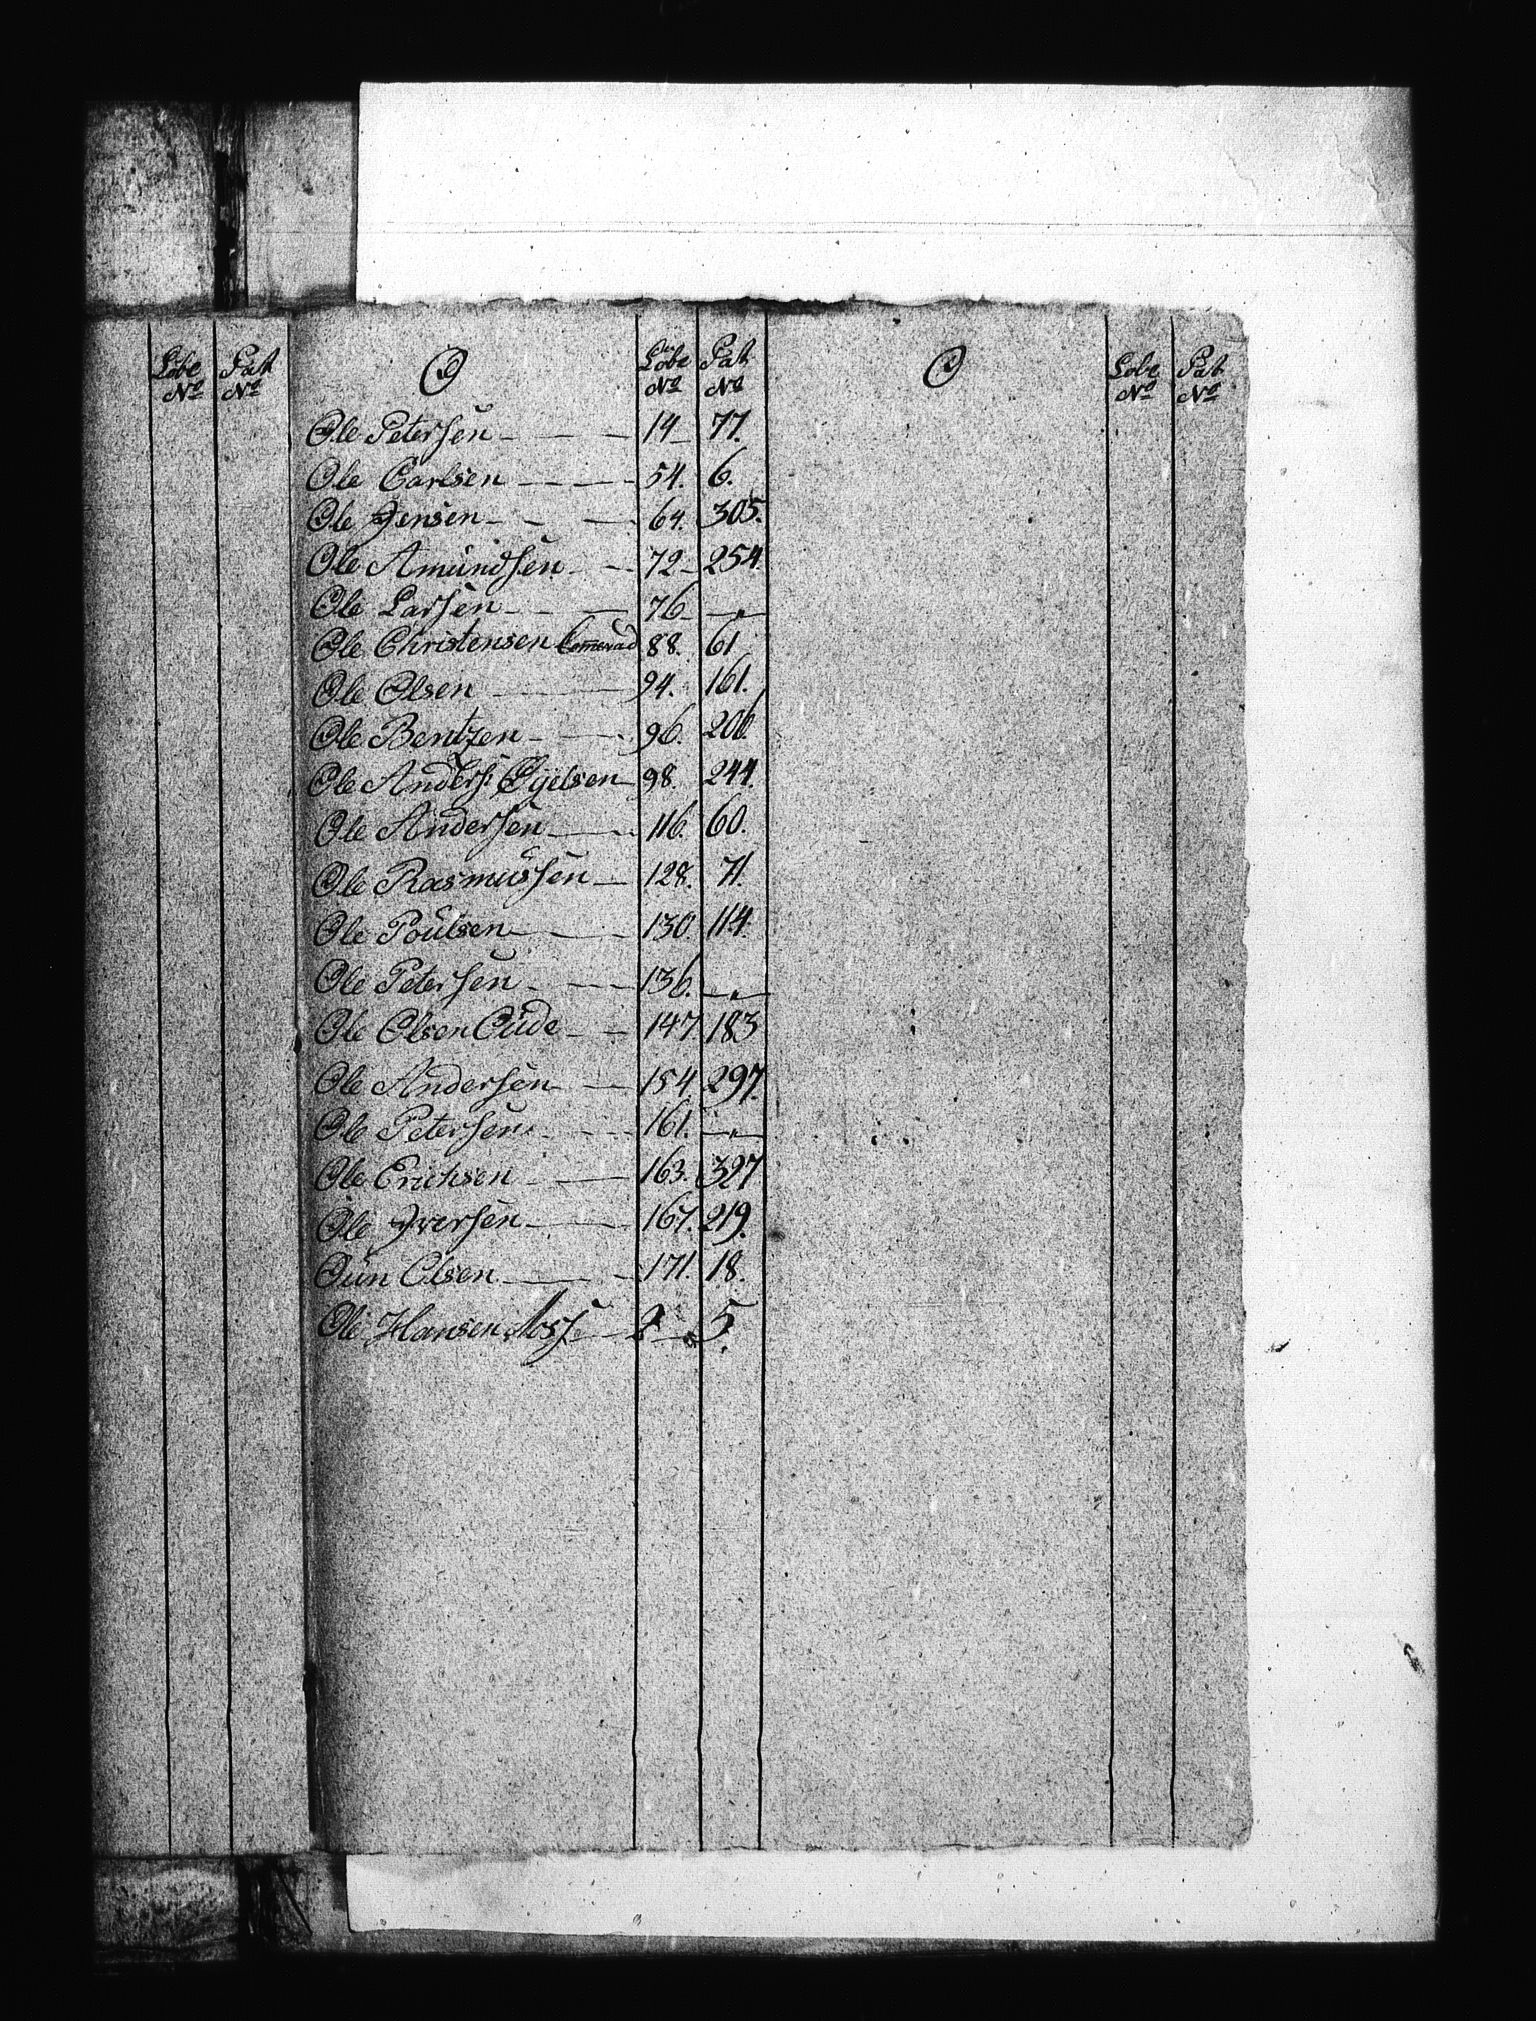 Løbe Pat
No No
O Løbe Pat
No No
Ole Petersen - - - 14 - 77.
Ole Carlsen - - - 54. 6.
Ole Jensen - - - 64. 305.
Ole Amundsen - - 72 - 254.
Ole Larsen - - - 76 - — " —
Ole Christensen 88. 61
Ole Olsen — 94. 161.
Ole Bentzen - — 96. 206.
Ole Anders: Eyelsen 98. 244.
Ole Andersen — 116. 60.
Ole Rasmussen — 128. 71.
Ole Poulsen — 130. 114.
Ole Petersen - — 136. — " —
Ole Olsen Oude - - 147. 183
Ole Andersen — 154 297.
Ole Petersen. - — 161. — " —
Ole Erichsen - — 163. 327
Ole Iversen — 167. 219.
Oun Olsen — 171. 18.
Ole Hansen Moss — 2 — 5.
O Løbe Pat
No No